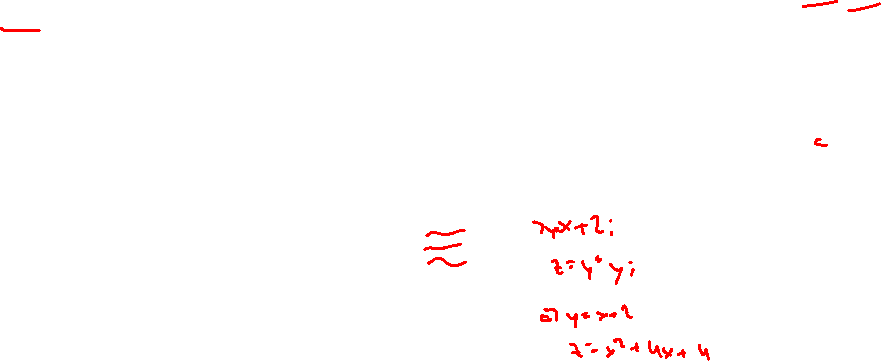 y=x+2;
z=y*y;
y=x+2
z=x²+4x+4